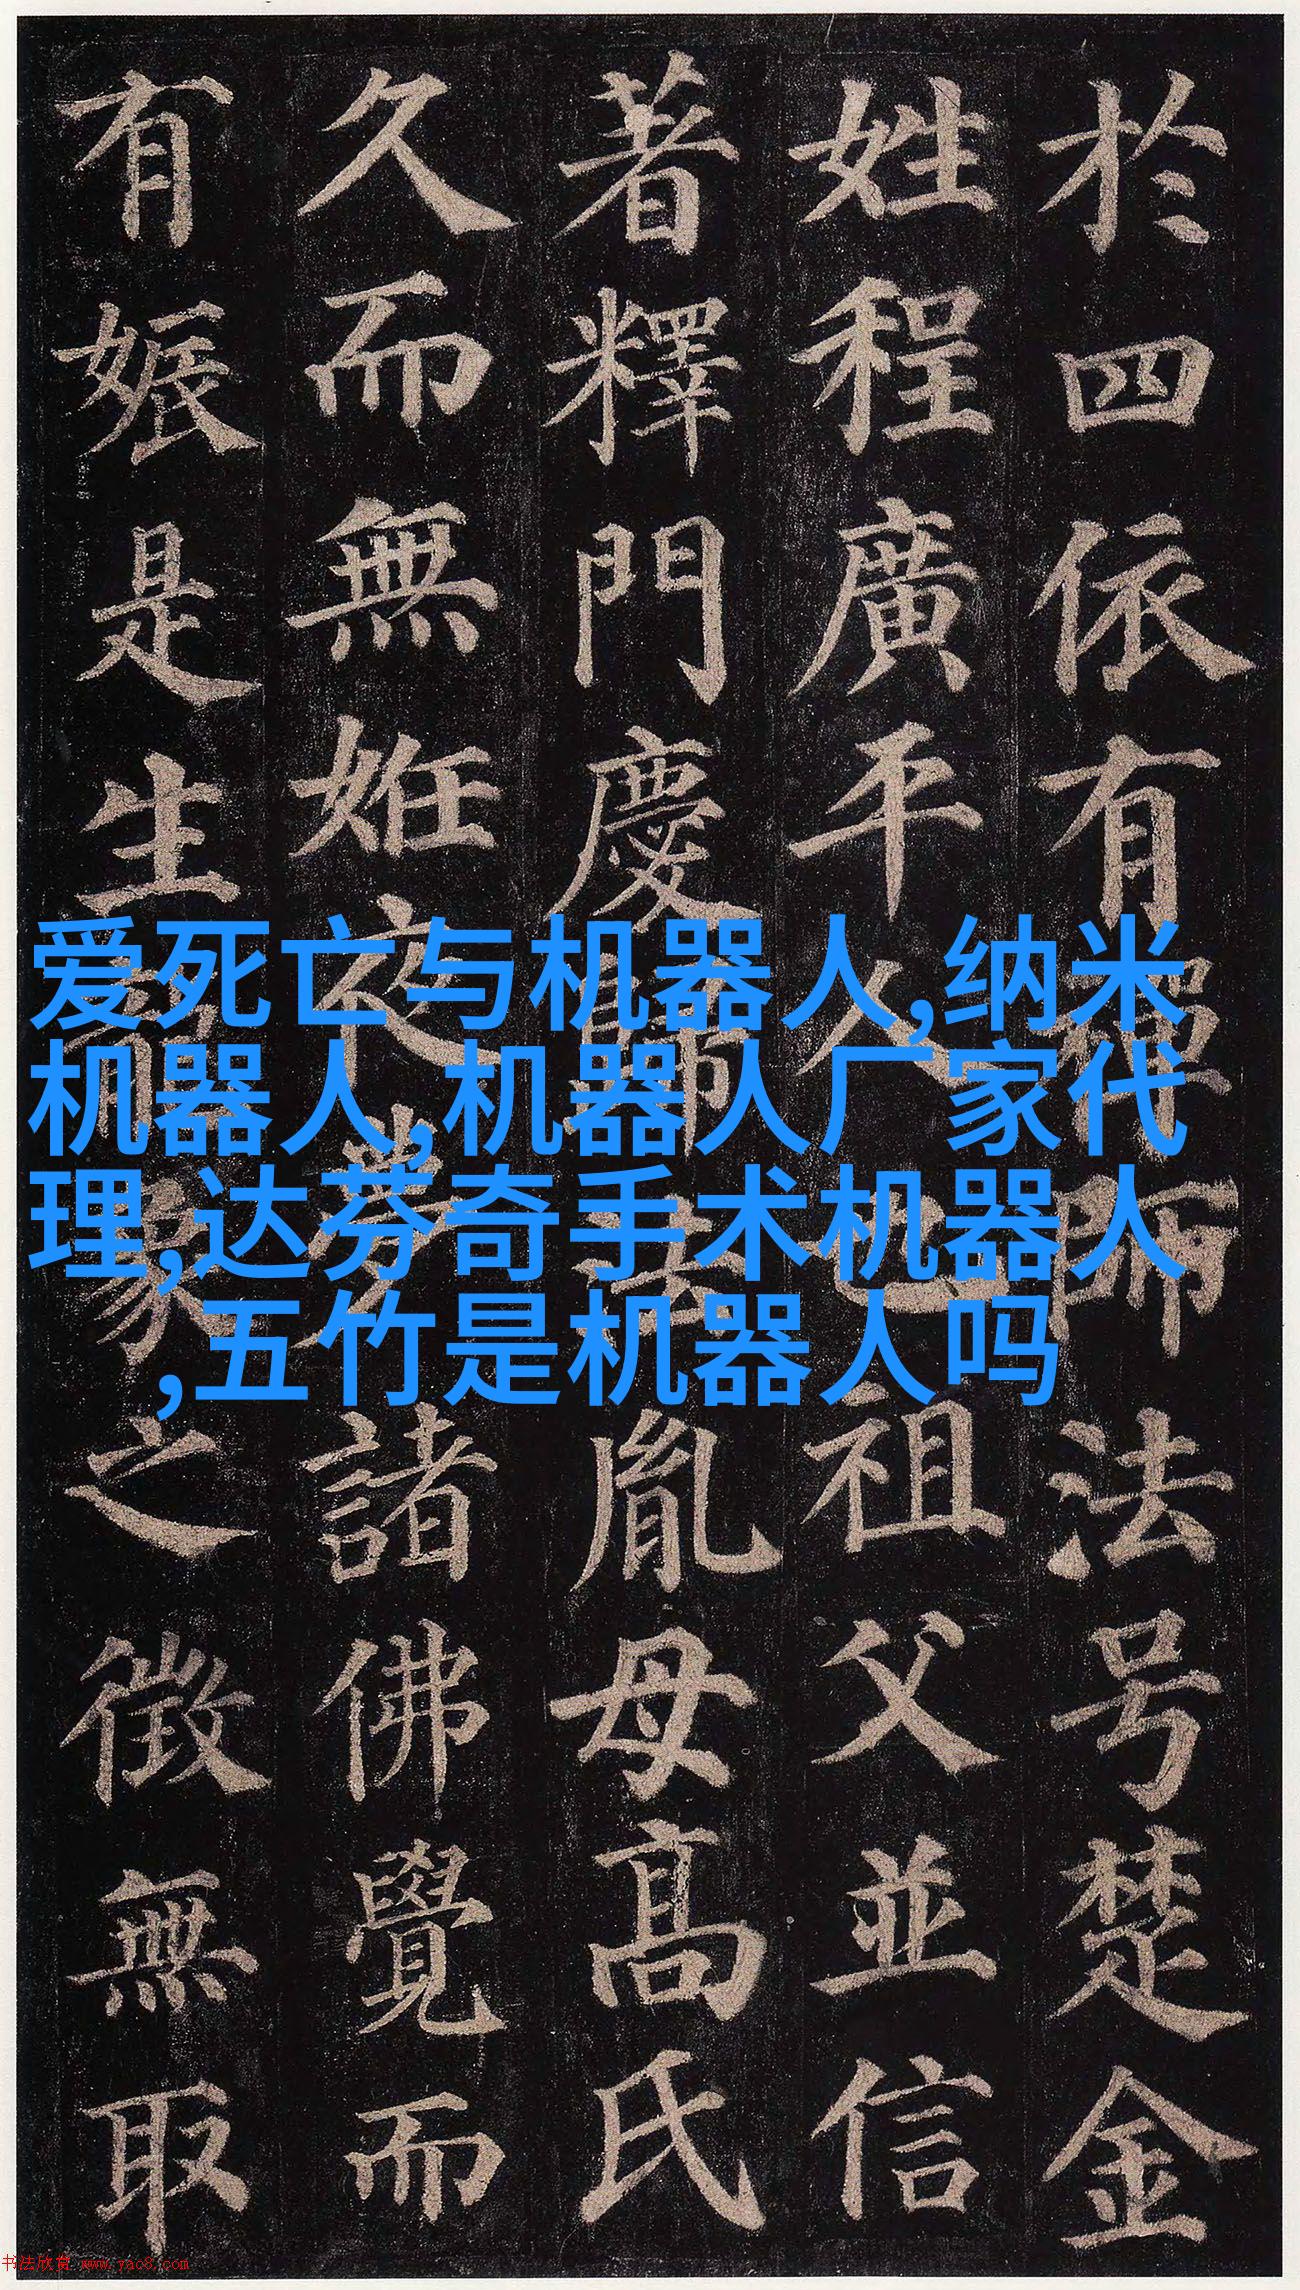 於四依有禪師法号楚金
姓程廣平人也祖父並信
著釋門慶歸法胤母高氏
久而無姙夜夢諸佛覺而
有娠是生龍象之徵無取
爱死亡与机器人,纳米
机器人,机器人厂家代
理,达芬奇手术机器人
,五竹是机器人吗
书法欣赏 www.yac8.com